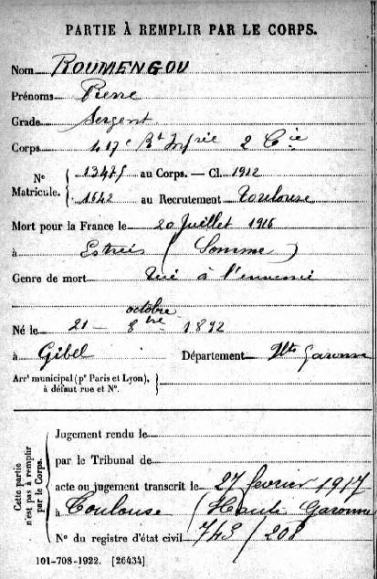 PARTIE À REMPLIR PAR LE CORPS.
Nom ROUMENGOU
Prénoms Pierre
Grade Sergent
Corps 417e Rt Infrie 2 Cie
No 13475 au Corps. — Cl. 1912
Matricule. 1542 au Recrutement Toulouse
Mort pour la France le 20 Juillet 1916
à Estrées (Somme)
Genre de mort Tué à l'ennemi
octobre
Né le 21 - 8bre 1892
à Gibel Département Hte Garonne
Arrt municipal (pr Paris et Lyon),
à défaut rue et No.
Cette partie
n'est pas à remplir
par le Corps.
Jugement rendu le
par le Tribunal de
acte ou jugement transcrit le 27 février 1917
à Toulouse (Haute Garonne
No du registre d'état civil 743/208
101-708-1922. [26434]